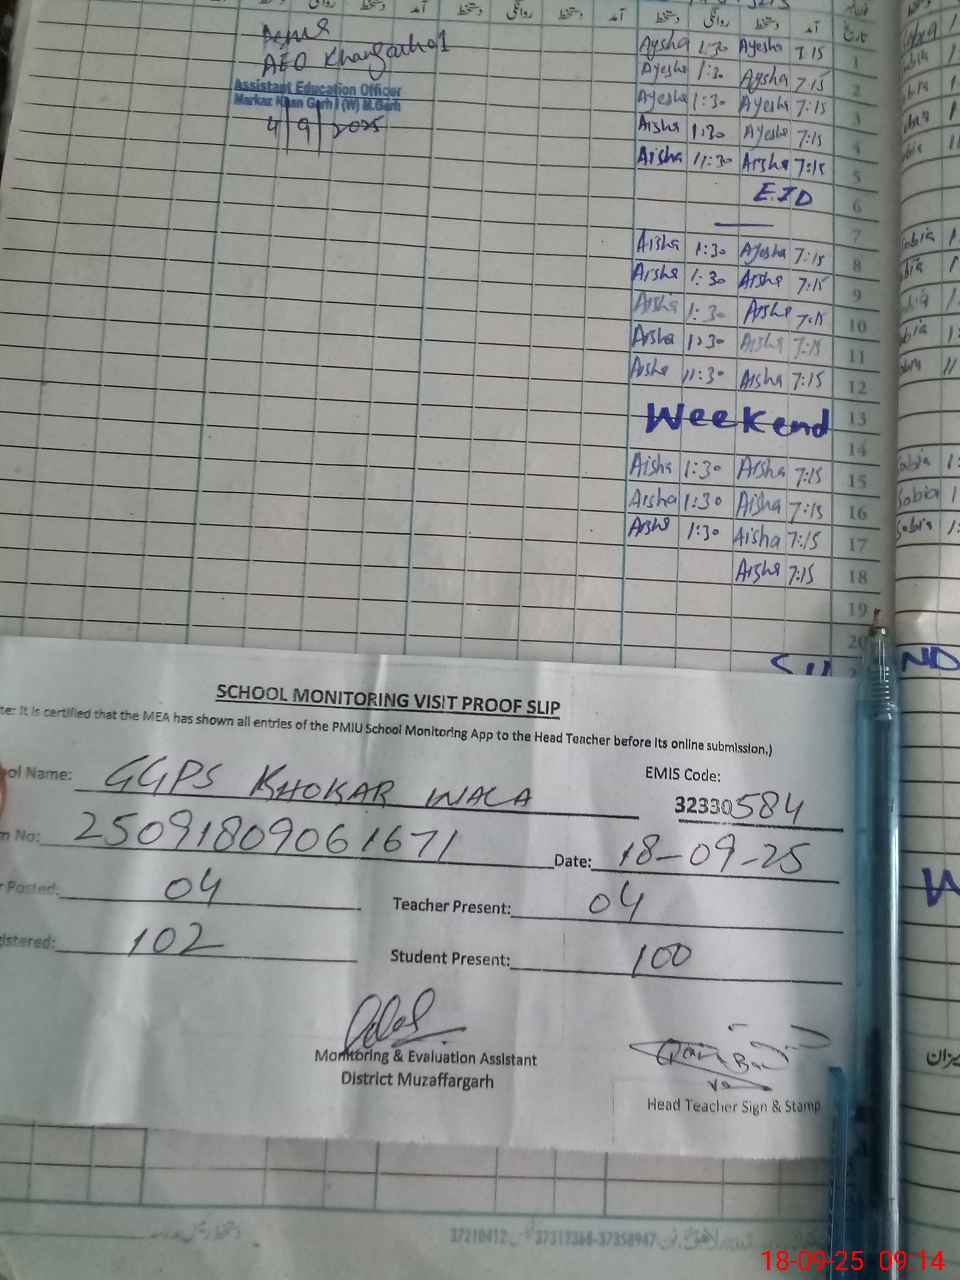 آمد دستخط روانگی دستخط آمد دستخط روانگی دستخط آمد
تاریخ
AEO Khangarh 1
Assistant Education Officer
Markaz Khan Garh I (W) M.Garh
4/9/2025
Aysha 1:30 Ayesha 7:15 1
Ayesha 1:30 Aysha 7:15 2
Ayesha 1:30 Ayesha 7:15 3
Aisha 1:30 Ayesha 7:15 4
Aisha 11:30 Aisha 7:15 5
EID 6
7
Aisha 1:30 Ayesha 7:15 8
Aisha 1:30 Aisha 7:15 9
Aisha 1:30 Aisha 7:15 10
Aisha 1:30 Aisha 7:15 11
Aisha 11:30 Aisha 7:15 12
Weekend 13
14
Aisha 1:30 Aisha 7:15 15
Aisha 1:30 Aisha 7:15 16
Aisha 1:30 Aisha 7:15 17
Aisha 7:15 18
19
20
Sabia
Sobia
Sobia
ND
SCHOOL MONITORING VISIT PROOF SLIP
te: It is certified that the MEA has shown all entries of the PMIU School Monitoring App to the Head Teacher before its online submission.)
ool Name: GGPS KHOKAR WALA EMIS Code:
32330584
n No: 25091809061671 Date: 18-09-25
r Posted: 04 Teacher Present: 04
gistered: 102 Student Present: 100
Monitoring & Evaluation Assistant
District Muzaffargarh
Head Teacher Sign & Stamp
37210412 37312368-37358947
18-09-25 09:14